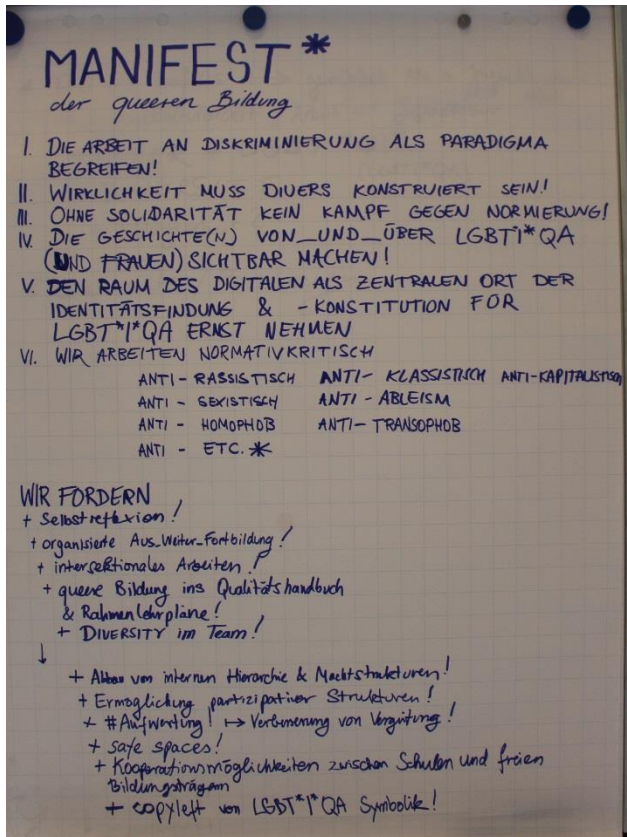 MANIFEST*
der queeren Bildung
I. DIE ARBEIT AN DISKRIMINIERUNG ALS PARADIGMA
BEGREIFEN!
II. WIRKLICHKEIT MUSS DIVERS KONSTRUIERT SEIN!
III. OHNE SOLIDARITÄT KEIN KAMPF GEGEN NORMIERUNG!
IV. DIE GESCHICHTE(N) VON_UND_ÜBER LGBTI*QA
(UND FRAUEN) SICHTBAR MACHEN!
V. DEN RAUM DES DIGITALEN ALS ZENTRALEN ORT DER
IDENTITÄTSFINDUNG & -KONSTITUTION FÜR
LGBT*I*QA ERNST NEHMEN
VI. WIR ARBEITEN NORMATIVKRITISCH
ANTI - RASSISTISCH ANTI - KLASSISTISCH ANTI-KAPITALISTISCH
ANTI - SEXISTISCH ANTI - ABLEISM
ANTI - HOMOPHOB ANTI - TRANSOPHOB
ANTI - ETC. *
WIR FORDERN
+ Selbstreflexion!
+ organisierte Aus_Weiter_Fortbildung!
+ intersektionales Arbeiten!
+ queere Bildung ins Qualitätshandbuch
& Rahmenlehrpläne!
+ DIVERSITY im Team!
↓
+ Abbau von internen Hierarchie & Machtstrukturen!
+ Ermöglichung partizipativer Strukturen!
+ #Aufwertung! ↦ Verbesserung von Vergütung!
+ safe spaces!
+ Kooperationsmöglichkeiten zwischen Schulen und freien
Bildungsträgern
+ copyleft von LGBT*I*QA Symbolik!